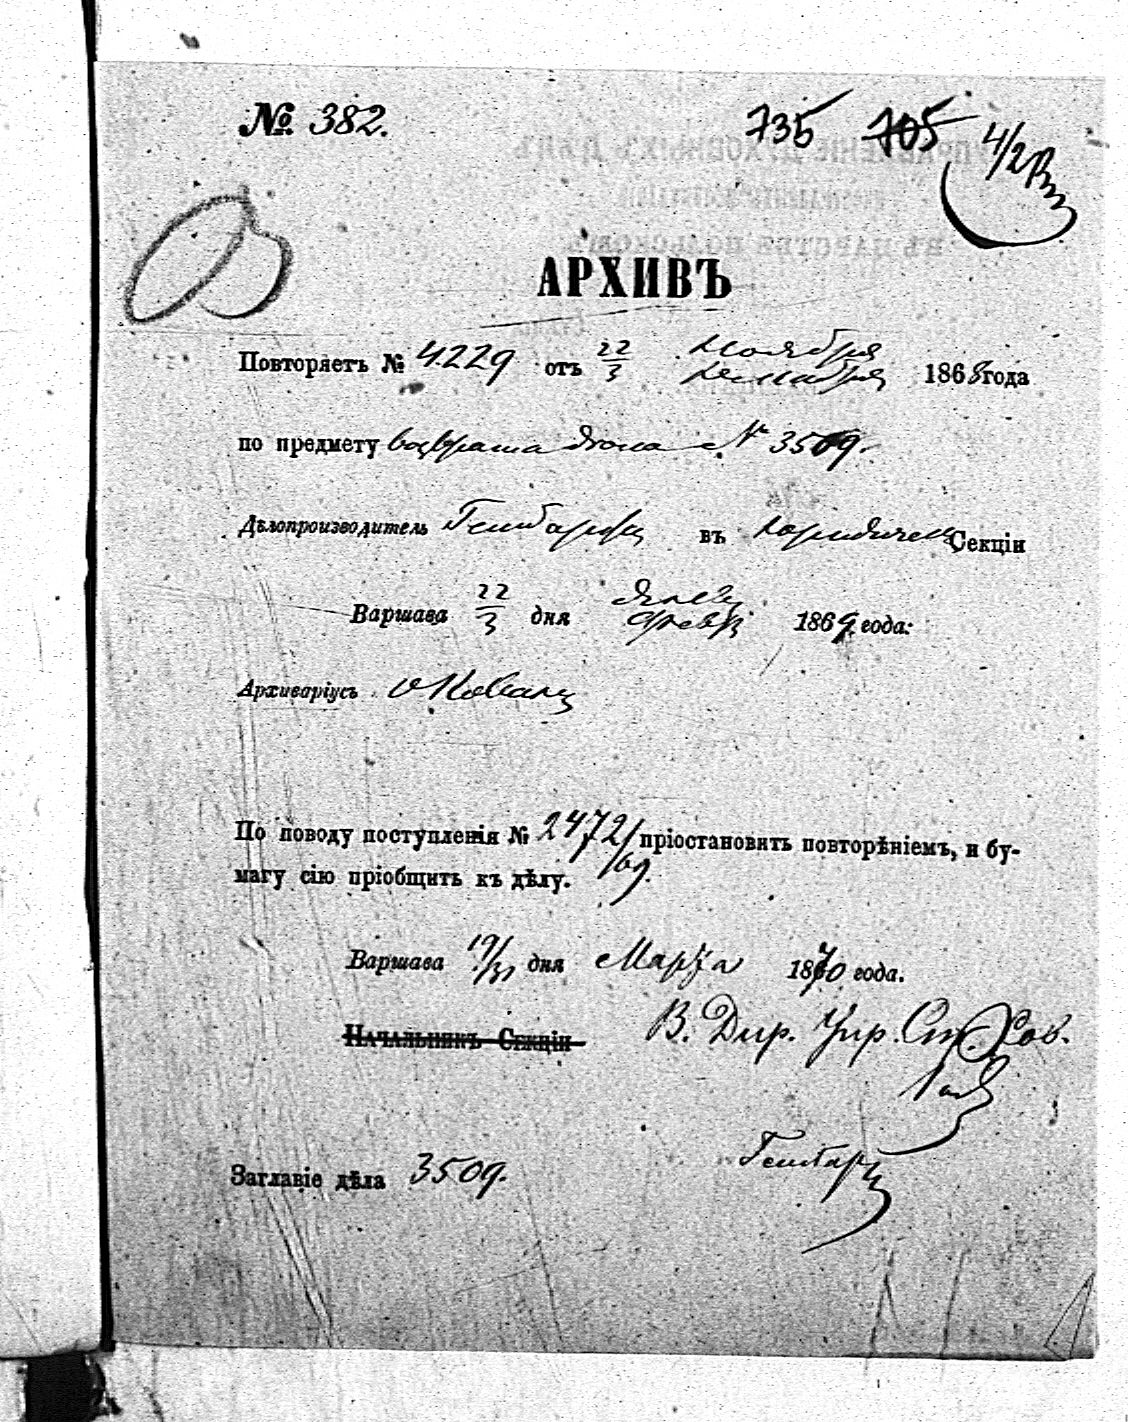 № 382.
735 705 4/2
АРХИВЪ
Повторяетъ № 4229 отъ 22/3 Ноября/Декабря 1868 года
по предмету возврата дѣла № 3509.
Дѣлопроизводитель въ юридическ Секціи
Варшава 22/3 дня Янв/Февр 1869 года:
Архиваріусъ
По поводу поступленія № 2472/69. пріостановить повторѣніемъ, и бу-
магу сію пріобщить къ дѣлу.
Варшава 19/31 дня Марта 1870 года.
Начальникъ Секціи В. Дир. Упр.
Заглавіе дѣла 3509.